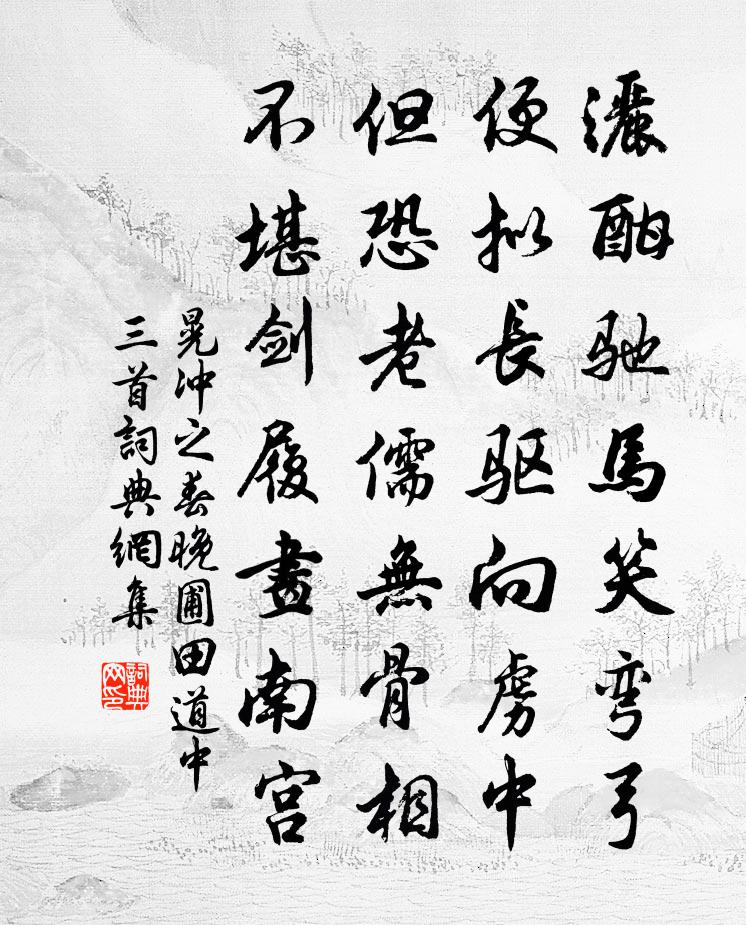 濃酣驰馬笑弯弓
便拟長驱向虏中
但恐老儒無骨相
不堪剑履畫南宫
晁冲之春晚圃田道中
三首詞典網集
詞典
网印